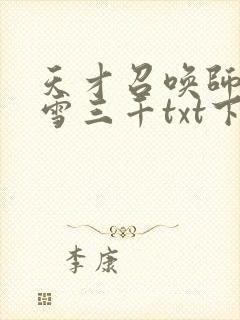 天才召唤師
雪三千txt下
李康